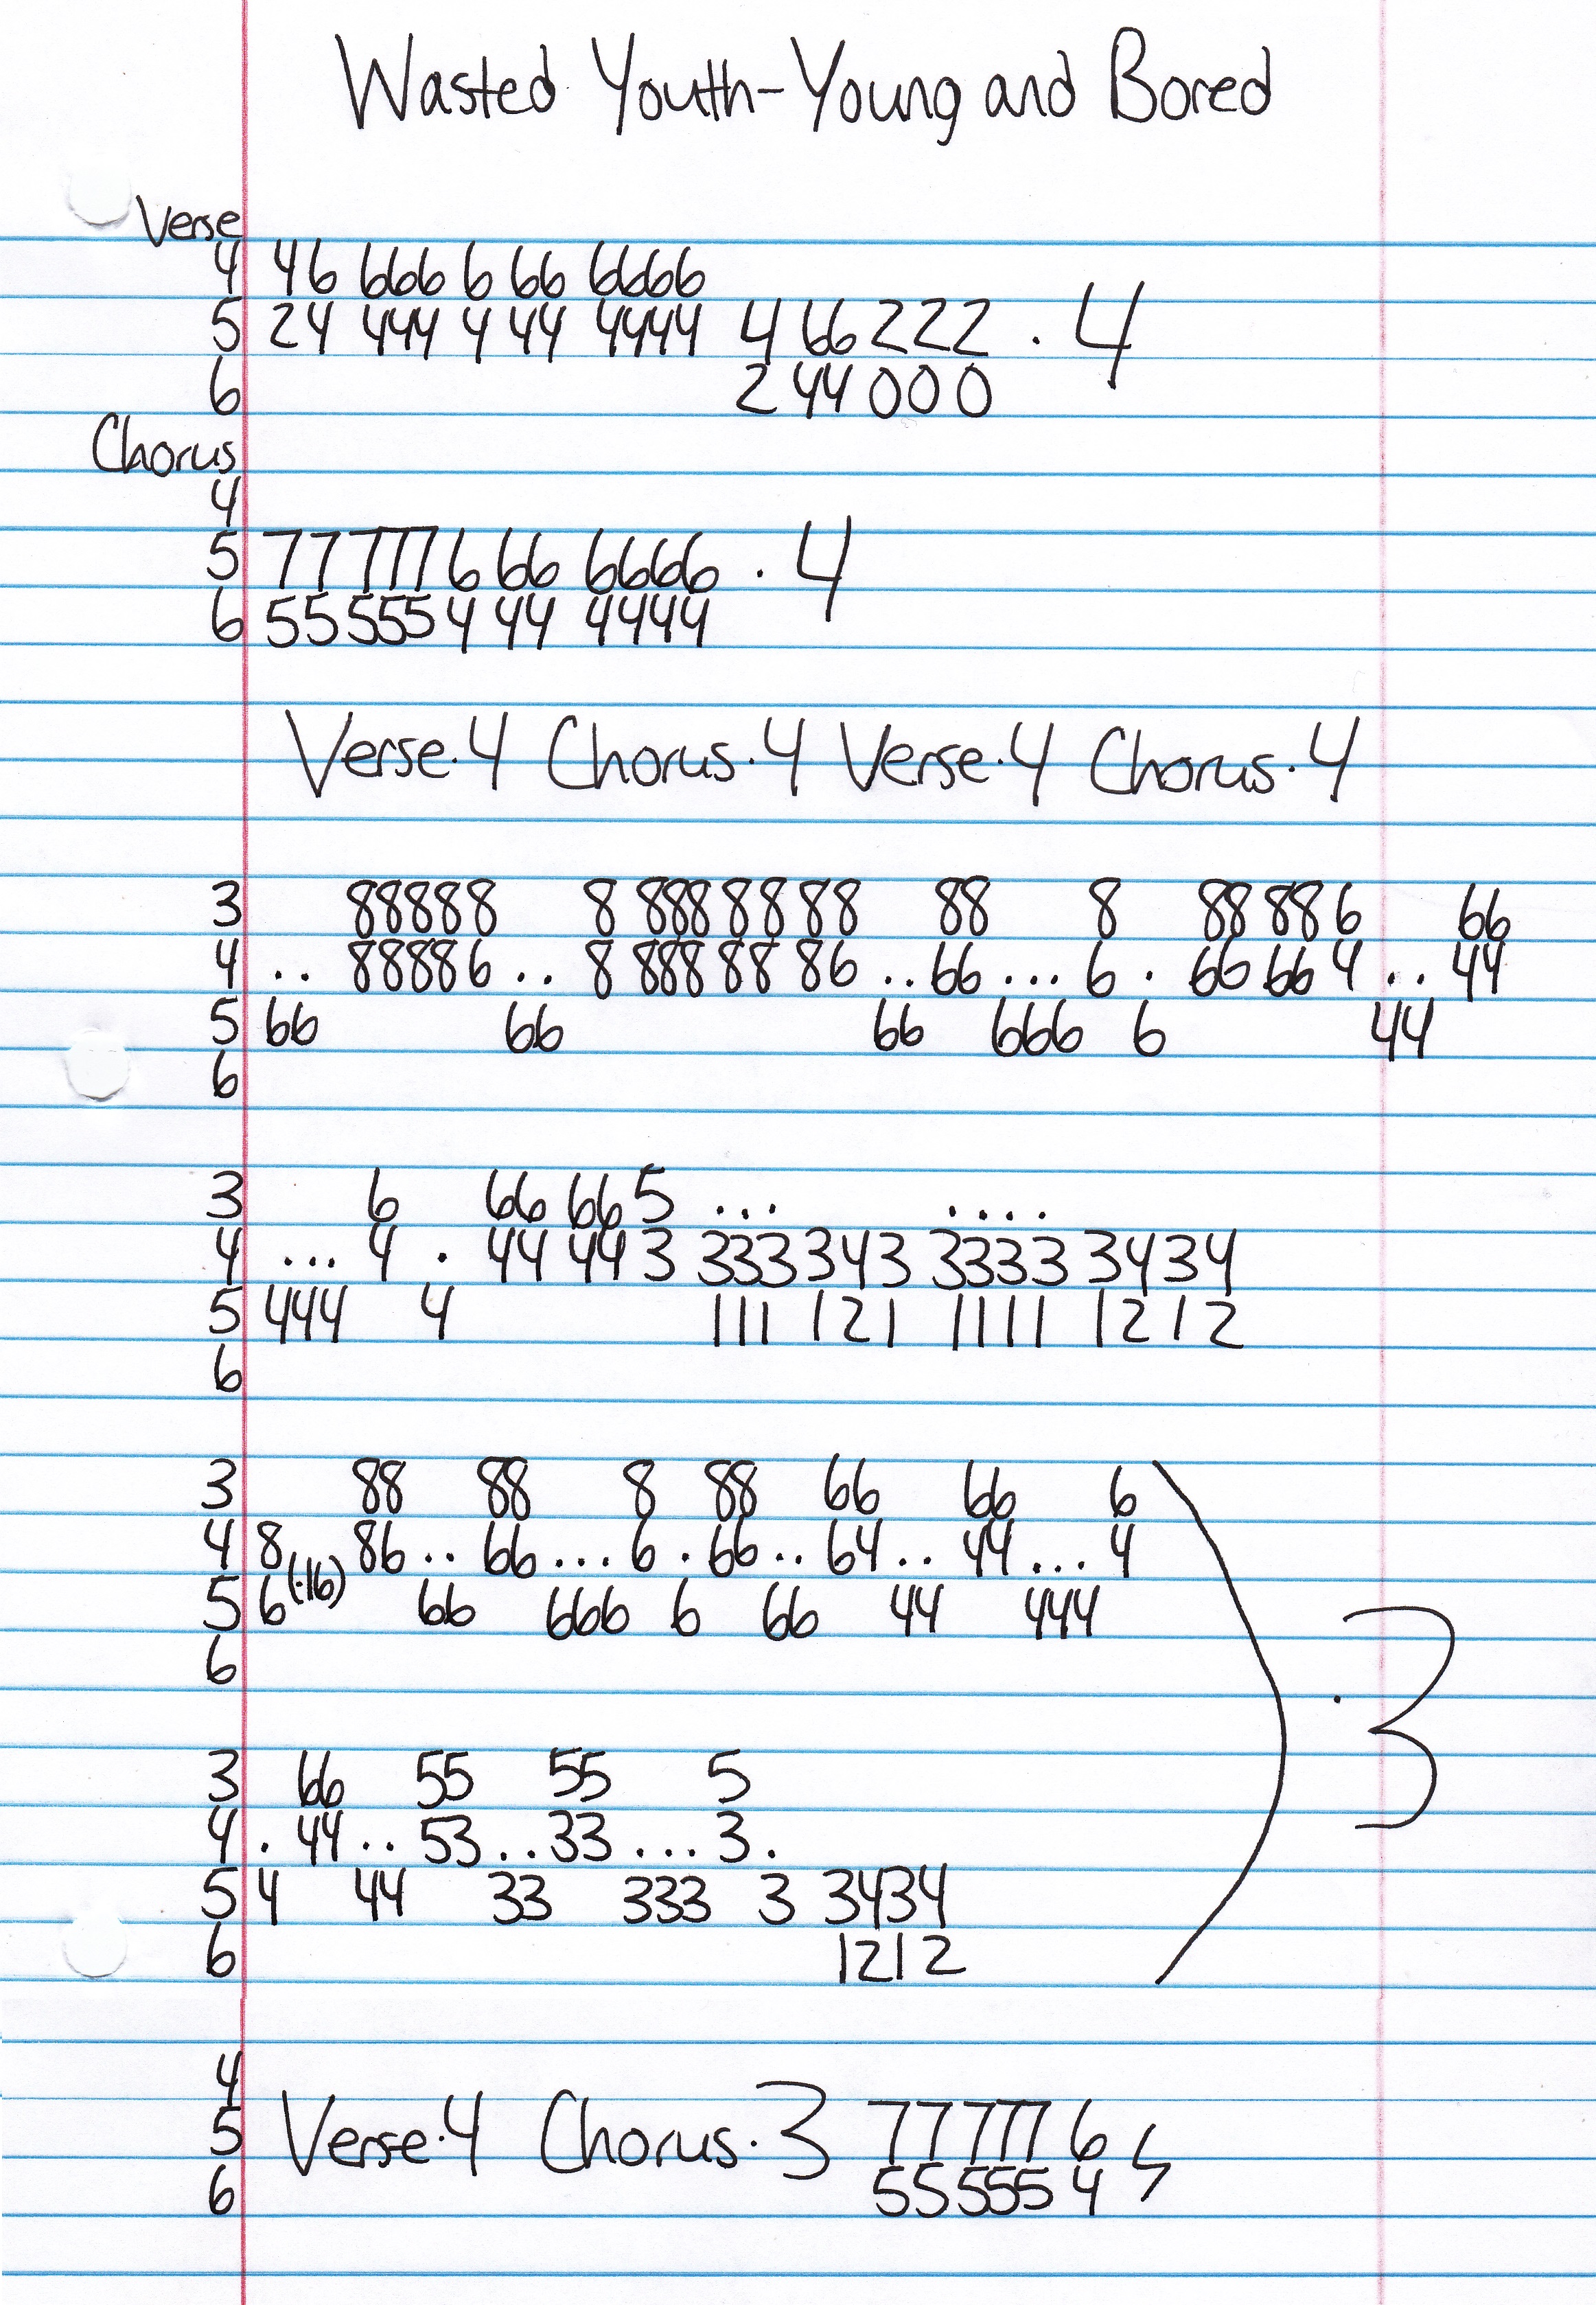 Wasted Youth-Young and Bored
Verse
4 46 666 6 66 6666
5 24 444 4 44 4444 4 66 222 . 4
6 2 44 000
Chorus
4
5 77 777 6 66 6666 . 4
6 55 555 4 44 4444
Verse.4 Chorus.4 Verse.4 Chorus.4
3 88888 8 888 88 88 88 8 88 88 6 66
4 .. 88886 .. 8 888 88 86 .. 66 ... 6 . 66 66 4 .. 44
5 66 66 66 666 6 44
6
3 6 66 66 5 ... ....
4 ... 4 . 44 44 3 333 343 3333 3434
5 444 4 111 121 1111 1212
6
3 88 88 8 88 66 66 6
4 8 86 .. 66 ... 6 . 66 .. 64 .. 44 ... 4
5 6(.16) 66 666 6 66 44 444
6
. 3
3 66 55 55 5
4 . 44 .. 53 .. 33 ... 3 .
5 4 44 33 333 3 3434
6 1212
4
5 Verse.4 Chorus.3 77 777 6
6 55 555 4